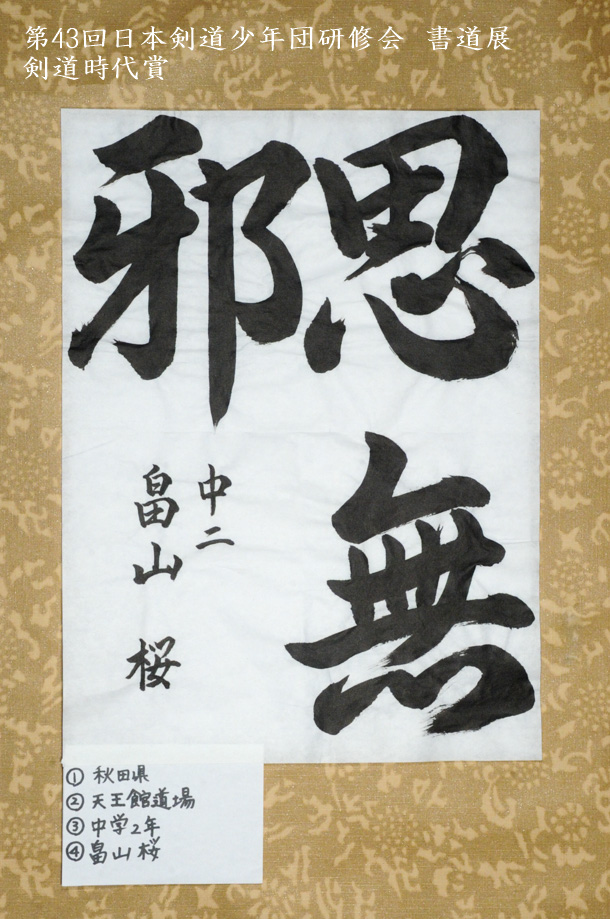 第43回日本剣道少年団研修会 書道展
剣道時代賞
思無
邪
中二
畠山 桜
① 秋田県
② 天王館道場
③ 中学2年
④ 畠山 桜